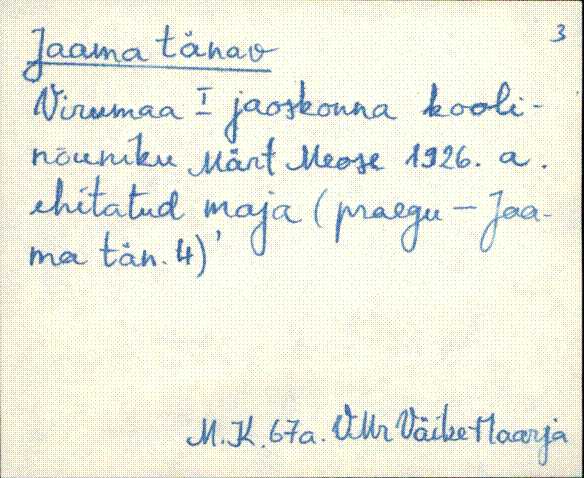 3
Jaama tänav
Virumaa I jaoskonna kooli-
nõuniku Märt Meose 1926. a.
ehitatud maja (praegu - Jaa-
ma tän. 4)'
M.K. 67a. VMr Väike-Maarja